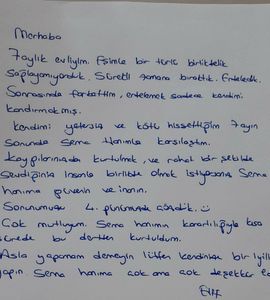 Merhaba
7 aylık evliyim. Eşimle bir türlü birliktelik
sağlayamıyorduk. Sürekli zamana bıraktık. Erteledik.
Sonrasında farkettim, ertelemek sadece kendimi
kandırmakmış.
Kendimi yetersiz ve kötü hissettiğim 7 ayın
sonunda Sema Hanımla karşılaştım.
Kaygılarınızdan kurtulmak, ve rahat bir şekilde
sevdiğiniz insanla birlikte olmak istiyorsanız Sema
hanıma güvenin ve inanın.
Sorunumuzu 4. günümüzde aştık. :)
Çok mutluyum. Sema hanımın kararlılığıyla kısa
sürede bu dertten kurtuldum.
Asla yapamam demeyin lütfen kendinize bir iyilik
yapın Sema hanıma çok ama çok teşekkür ed